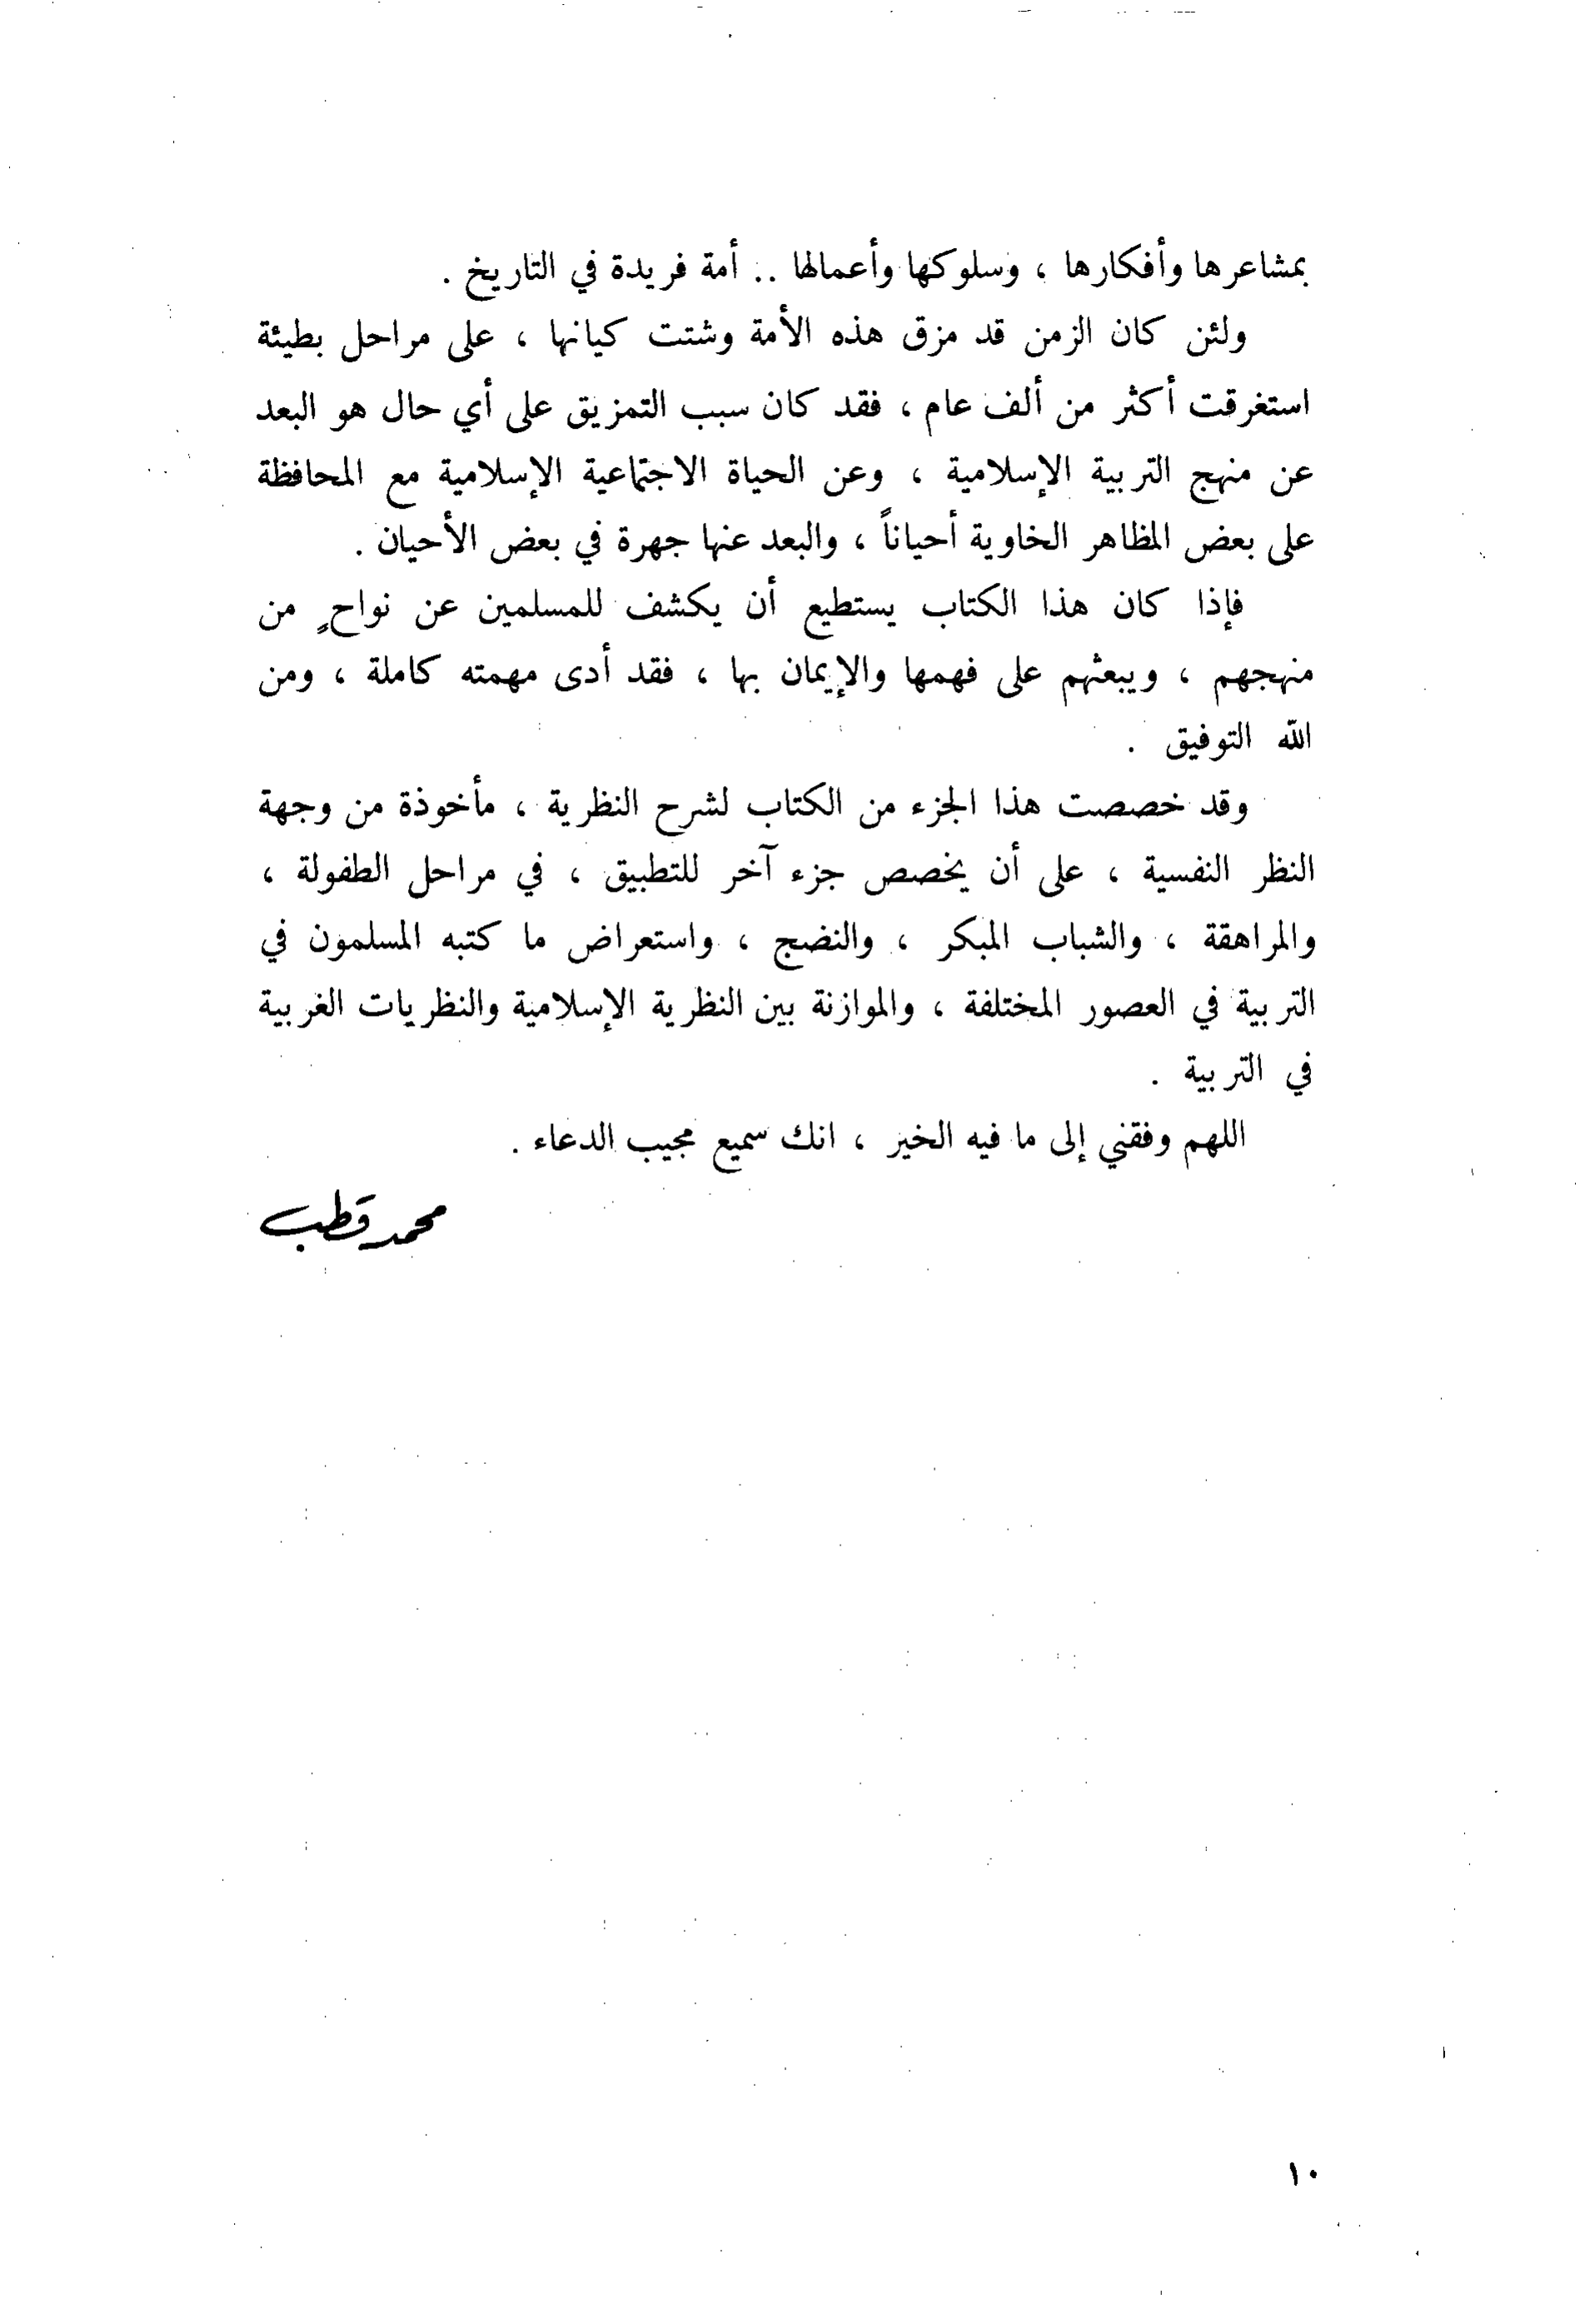 بمشاعرها وأفكارها ، وسلوكها وأعمالها .. أمة فريدة في التاريخ .
ولئن كان الزمن قد مزق هذه الأمة وشتت كيانها ، على مراحل بطيئة
استغرقت أكثر من ألف عام ، فقد كان سبب التمزيق على أي حال هو البعد
عن منهج التربية الإسلامية ، وعن الحياة الاجتماعية الإسلامية مع المحافظة
على بعض المظاهر الخاوية أحياناً ، والبعد عنها جهرة في بعض الأحيان .
فإذا كان هذا الكتاب يستطيع أن يكشف للمسلمين عن نواحٍ من
منهجهم ، ويبعثهم على فهمها والإيمان بها ، فقد أدى مهمته كاملة ، ومن
الله التوفيق .
وقد خصصت هذا الجزء من الكتاب لشرح النظرية ، مأخوذة من وجهة
النظر النفسية ، على أن يخصص جزء آخر للتطبيق ، في مراحل الطفولة ،
والمراهقة ، والشباب المبكر ، والنضج ، واستعراض ما كتبه المسلمون في
التربية في العصور المختلفة ، والموازنة بين النظرية الإسلامية والنظريات الغربية
في التربية .
اللهم وفقني إلى ما فيه الخير ، انك سميع مجيب الدعاء .
محمد قطب
١٠